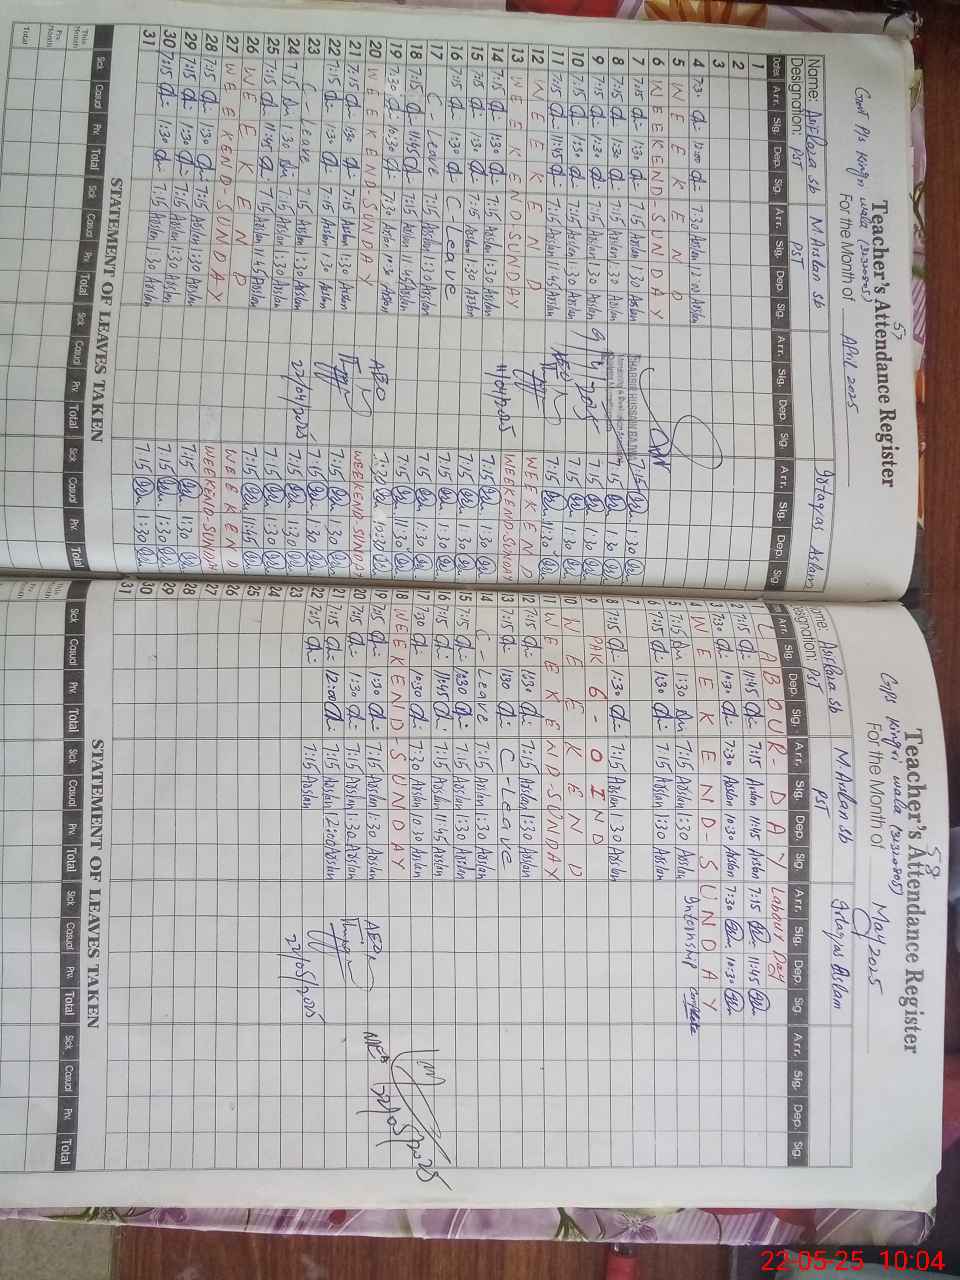 57
Teacher's Attendance Register
For the Month of April 2025
Name: M. Arslan Sb Arslan
Designation: PST PST
Dates Arr. Sig. Dep. Sig. Arr. Sig. Dep. Sig. Arr. Sig. Dep. Sig. Arr. Sig. Dep. Sig.
1
2
3
4 7:30 12:00 7:30 Arslan 12:00 Arslan
5 WEEKEND
6 WEEKEND-SUNDAY
7 7:15 1:30 7:15 Arslan 1:30 Arslan 7:15 1:30
8 7:15 1:30 7:15 Arslan 1:30 Arslan 7:15 1:30
9 7:15 1:30 7:15 Arslan 1:30 Arslan 7:15 1:30
10 7:15 1:30 7:15 Arslan 1:30 Arslan 7:15 1:30
11 7:15 11:45 7:15 Arslan 11:45 Arslan AEO 7:15
12 WEEKEND WEEKEND
13 WEEKEND-SUNDAY WEEKEND-SUNDAY
14 7:15 1:30 7:15 Arslan 1:30 Arslan 11/04/2025 7:15 1:30
15 7:15 1:30 7:15 Arslan 1:30 Arslan 7:15 1:30
16 7:15 1:30 C-Leave 7:15 1:30
17 C-Leave 7:15 Arslan 1:30 Arslan 7:15 1:30
18 7:15 11:45 7:15 Arslan 11:45 Arslan 7:15
19 7:30 10:30 7:30 Arslan 10:30 Arslan 7:30 10:30
20 WEEKEND-SUNDAY AEO WEEKEND-SUNDAY
21 7:15 1:30 7:15 Arslan 1:30 Arslan 7:15 1:30
22 7:15 1:30 7:15 Arslan 1:30 Arslan 7:15 1:30
23 C-Leave 7:15 Arslan 1:30 Arslan 7:15 1:30
24 7:15 1:30 7:15 Arslan 1:30 Arslan 22/04/2025 7:15 1:30
25 7:15 11:45 7:15 Arslan 11:45 Arslan 7:15 11:45
26 WEEKEND WEEKEND
27 WEEKEND-SUNDAY WEEKEND-SUNDAY
28 7:15 1:30 7:15 Arslan 1:30 Arslan 7:15 1:30
29 7:15 1:30 7:15 Arslan 1:30 Arslan 7:15 1:30
30 7:15 1:30 7:15 Arslan 1:30 Arslan 7:15 1:30
31
STATEMENT OF LEAVES TAKEN
Sick Casual Prv. Total Sick Casual Prv. Total Sick Casual Prv. Total Sick Casual Prv. Total
This Month
Prv. Month
Total
58
Teacher's Attendance Register
For the Month of May 2025
M. Arslan Sb
PST PST
Arr. Sig. Dep. Sig. Arr. Sig. Dep. Sig. Arr. Sig. Dep. Sig. Arr. Sig. Dep. Sig.
1 LABOUR-DAY Labour Day
2 7:15 11:45 7:15 Arslan 11:45 Arslan 7:15 11:45
3 7:30 10:30 7:30 Arslan 10:30 Arslan 7:30 10:30
4 WEEKEND-SUNDAY
5 7:15 1:30 7:15 Arslan 1:30 Arslan Internship complete
6 7:15 1:30 7:15 Arslan 1:30 Arslan
7
8 7:15 1:30 7:15 Arslan 1:30 Arslan
9 PAK
10 WEEKEND
11 WEEKEND-SUNDAY
12 7:15 1:30 7:15 Arslan 1:30 Arslan
13 7:15 1:30 C-Leave
14 C-Leave 7:15 Arslan 1:30 Arslan
15 7:15 7:15 Arslan 1:30 Arslan
16 7:15 11:45 7:15 Arslan 11:45 Arslan
17 7:30 10:30 7:30 Arslan 10:30 Arslan
18 WEEKEND-SUNDAY
19 7:15 1:30 7:15 Arslan 1:30 Arslan
20 7:15 1:30 7:15 Arslan 1:30 Arslan AEO
21 7:15 12:00 7:15 Arslan 12:00 Arslan
22 7:15 7:15 Arslan
23 22/05/2025 22/05/2025
24
25
26
27
28
29
30
31
STATEMENT OF LEAVES TAKEN
Sick Casual Prv. Total Sick Casual Prv. Total Sick Casual Prv. Total Sick Casual Prv. Total
22-05-25 10:04